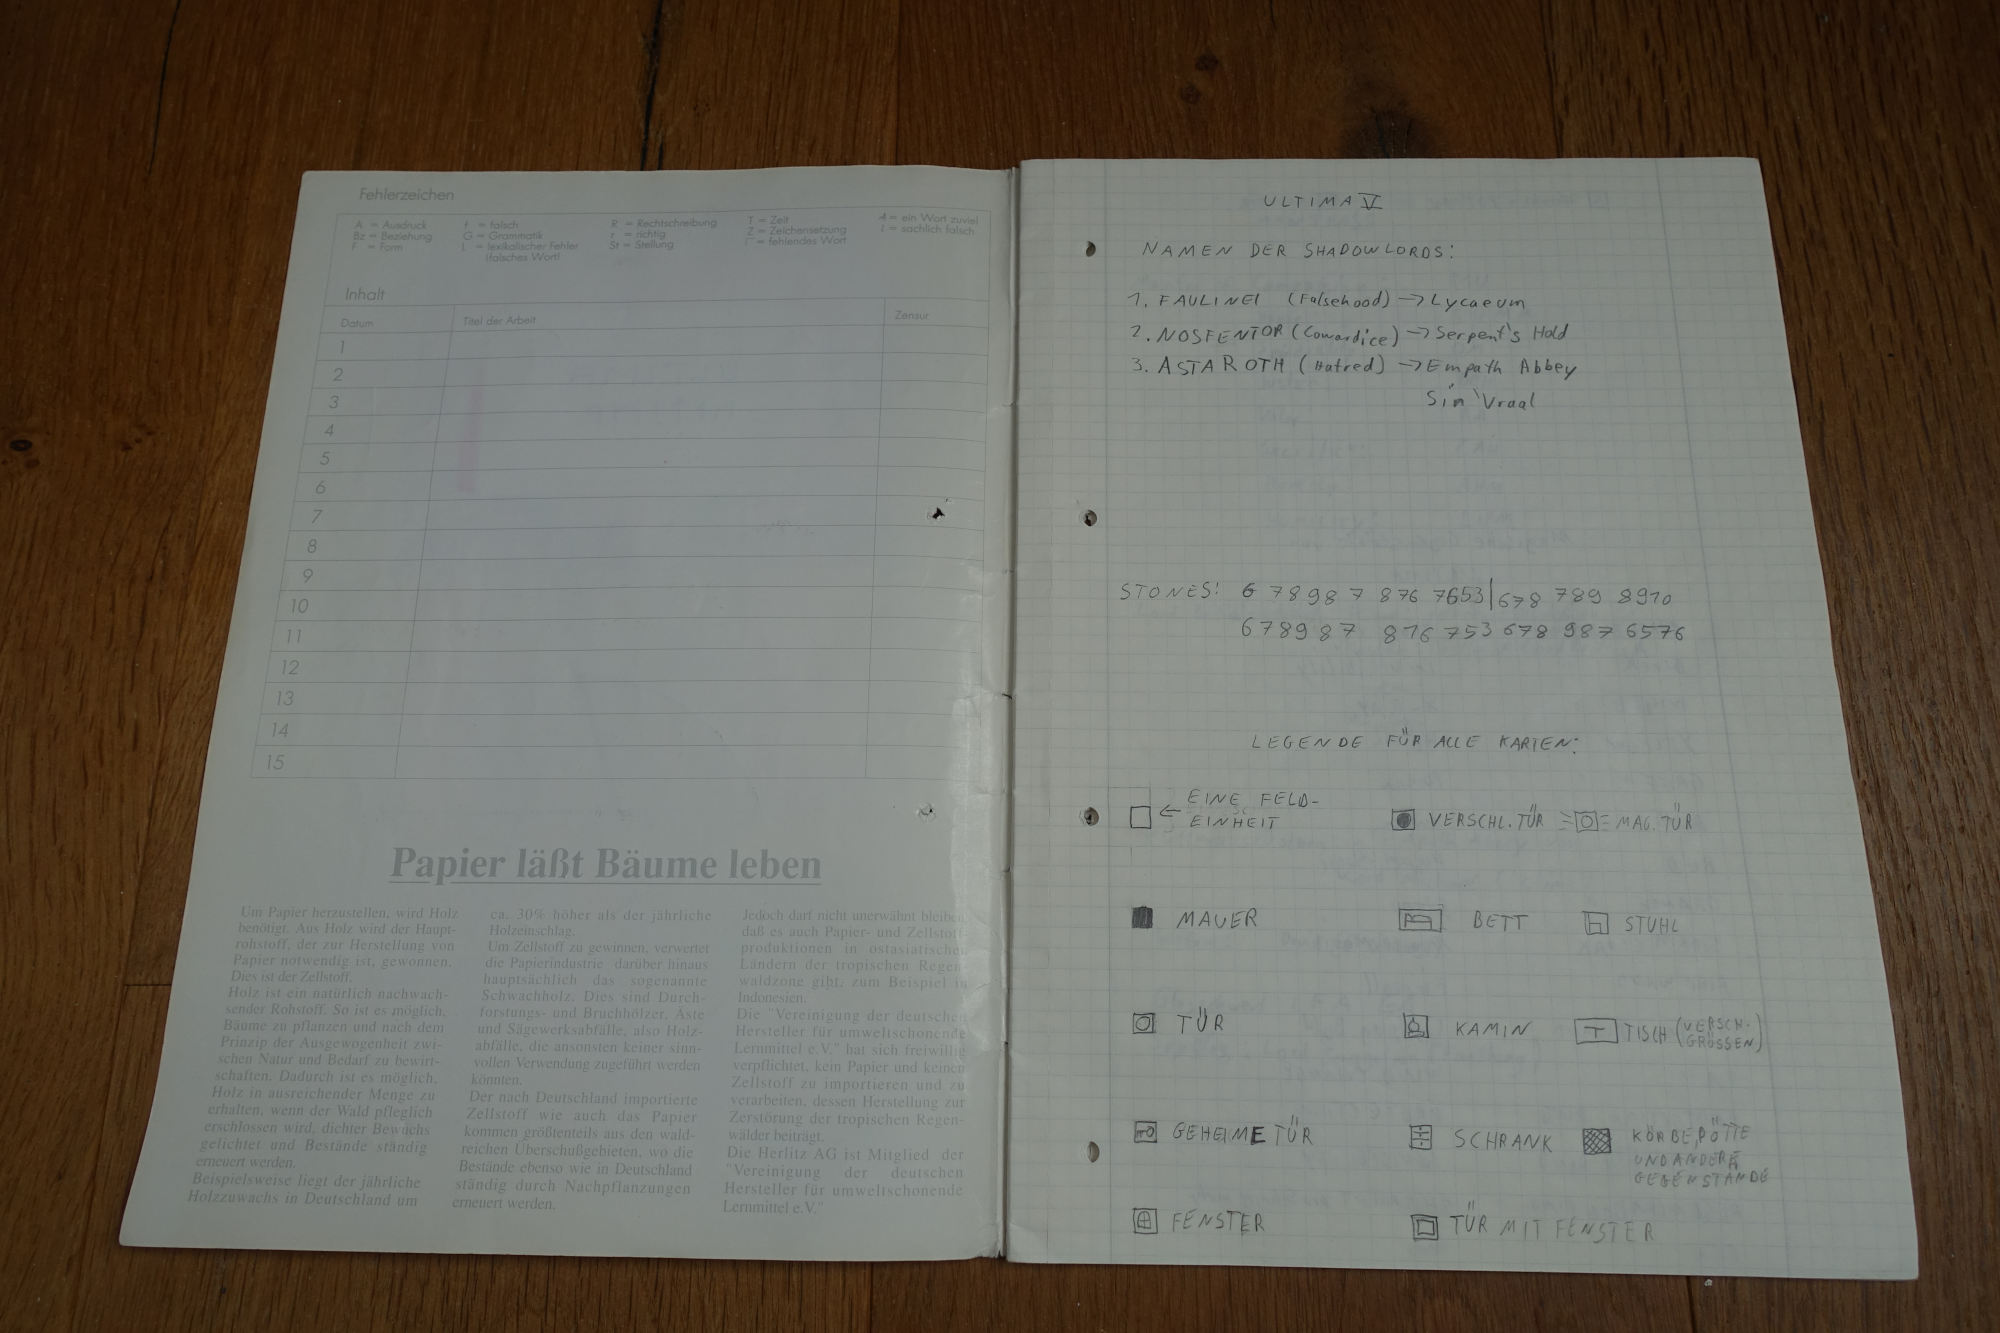 Fehlerzeichen
A = Ausdruck
Bz = Beziehung
F = Form
f = falsch
G = Grammatik
L = lexikalischer Fehler
(falsches Wort)
R = Rechtschreibung
r = richtig
St = Stellung
T = Zeit
Z = Zeichensetzung
Γ = fehlendes Wort
= ein Wort zuviel
= sachlich falsch
Inhalt
Datum Titel der Arbeit Zensur
1
2
3
4
5
6
7
8
9
10
11
12
13
14
15
Papier läßt Bäume leben
Um Papier herzustellen, wird Holz
benötigt. Aus Holz wird der Haupt-
rohstoff, der zur Herstellung von
Papier notwendig ist, gewonnen.
Dies ist der Zellstoff.
Holz ist ein natürlich nachwach-
sender Rohstoff. So ist es möglich,
Bäume zu pflanzen und nach dem
Prinzip der Ausgewogenheit zwi-
schen Natur und Bedarf zu bewirt-
schaften. Dadurch ist es möglich,
Holz in ausreichender Menge zu
erhalten, wenn der Wald pfleglich
erschlossen wird, dichter Bewuchs
gelichtet und Bestände ständig
erneuert werden.
Beispielsweise liegt der jährliche
Holzzuwachs in Deutschland um
ca. 30% höher als der jährliche
Holzeinschlag.
Um Zellstoff zu gewinnen, verwertet
die Papierindustrie darüber hinaus
hauptsächlich das sogenannte
Schwachholz. Dies sind Durch-
forstungs- und Bruchhölzer, Äste
und Sägewerksabfälle, also Holz-
abfälle, die ansonsten keiner sinn-
vollen Verwendung zugeführt werden
könnten.
Der nach Deutschland importierte
Zellstoff wie auch das Papier
kommen größtenteils aus den wald-
reichen Überschußgebieten, wo die
Bestände ebenso wie in Deutschland
ständig durch Nachpflanzungen
erneuert werden.
Jedoch darf nicht unerwähnt bleiben,
daß es auch Papier- und Zellstoff-
produktionen in ostasiatischen
Ländern der tropischen Regen-
waldzone gibt, zum Beispiel in
Indonesien.
Die "Vereinigung der deutschen
Hersteller für umweltschonende
Lernmittel e.V." hat sich freiwillig
verpflichtet, kein Papier und keinen
Zellstoff zu importieren und zu
verarbeiten, dessen Herstellung zur
Zerstörung der tropischen Regen-
wälder beiträgt.
Die Herlitz AG ist Mitglied der
"Vereinigung der deutschen
Hersteller für umweltschonende
Lernmittel e.V."
ULTIMA V
NAMEN DER SHADOWLORDS:
1. FAULINEI (Falsehood) → Lycaeum
2. NOSFENTOR (Cowardice) → Serpent's Hold
3. ASTAROTH (Hatred) → Empath Abbey
Sin 'Vraal
STONES: 6 78987 876 7653|678 789 8910
678987 876 753 678 987 6576
LEGENDE FÜR ALLE KARTEN:
← EINE FELD-
EINHEIT
VERSCHL. TÜR
MAG. TÜR
MAUER
BETT
STUHL
TÜR
KAMIN
T TISCH (VERSCH.
GRÖSSEN)
GEHEIME TÜR
SCHRANK
KÖRBE, PÖTTE
UND ANDERE
GEGENSTÄNDE
FENSTER
TÜR MIT FENSTER